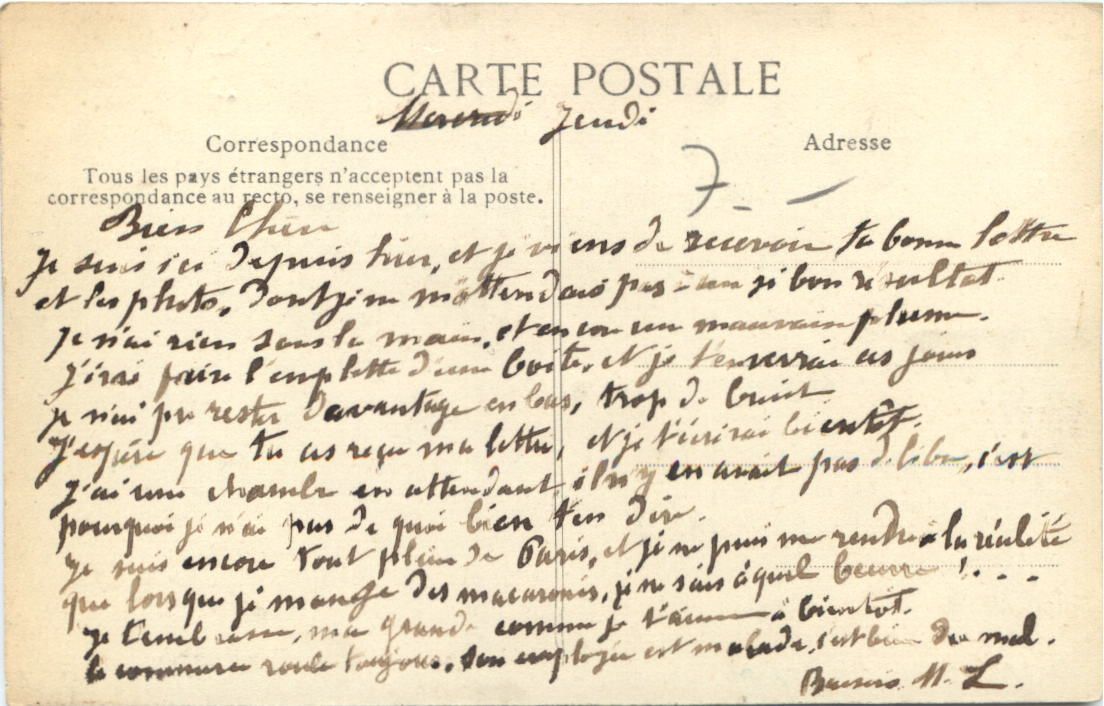 CARTE POSTALE
Mercredi Jeudi
Correspondance
Adresse
Tous les pays étrangers n'acceptent pas la
correspondance au recto, se renseigner à la poste.
7 -
Bien Chère
Je suis ici depuis hier, et je viens de recevoir ta bonne lettre
et les photos, dont je ne m'attendais pas à un si bon résultat.
Je n'ai rien sous la main, et encore un mauvaise plume.
J'irai faire l'emplette d'une boite, et je t'enverrai ces jours
je n'ai pu rester davantage en bas, trop de bruit
J'espère que tu as reçu ma lettre, et je t'écrirai bientôt.
J'ai une chambre en attendant, il n'y en avait pas d. libre, c'est
pourquoi je n'ai pas de quoi bien t'en dire.
Je suis encore tout plein de Paris, et je ne puis me rendre à la réalité
que lorsque je mange des macaronis, je ne sais à quel beurre !...
Je t'embrasse, ma grande comme je t'aime à bientôt.
le commerce roule toujours, son employée est malade, c'est bien du mal.
Baisers M. L.